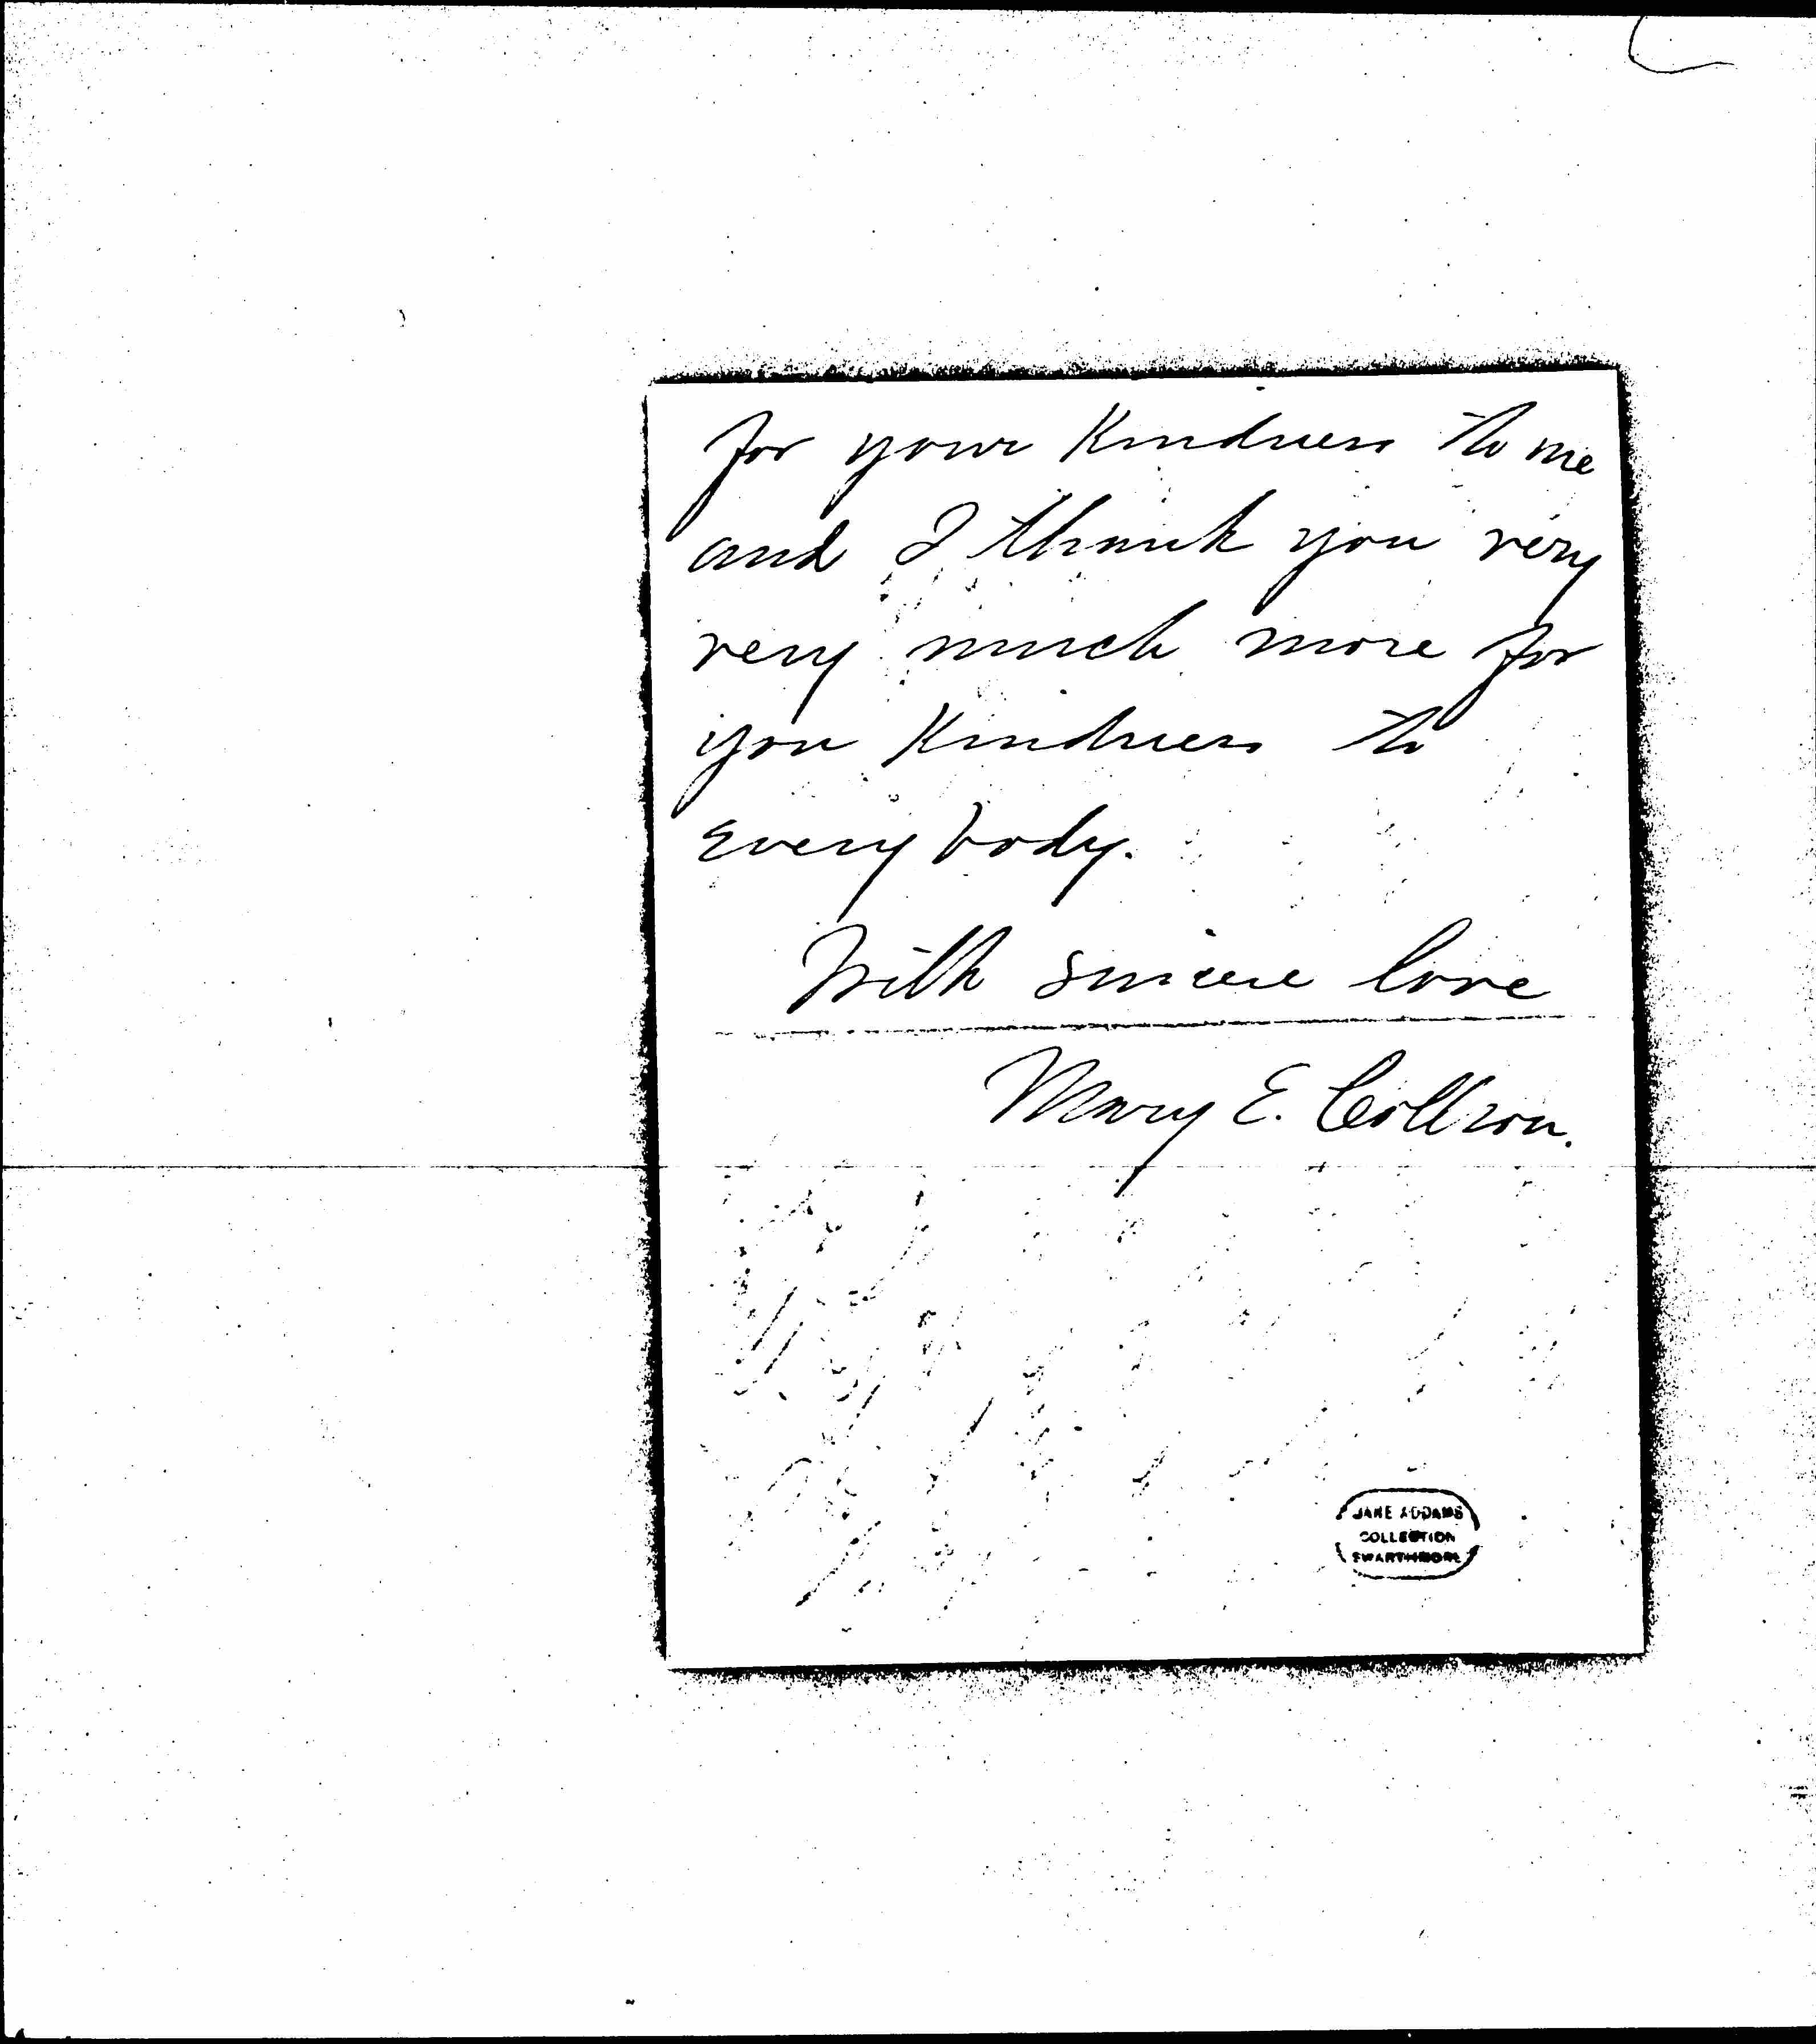 for your Kindness to me
and I thank you very
very much more for
you Kindness to
every body.
With sincere love
Mary E. Collson.
JANE ADDAMS
COLLECTION
SWARTHMORE